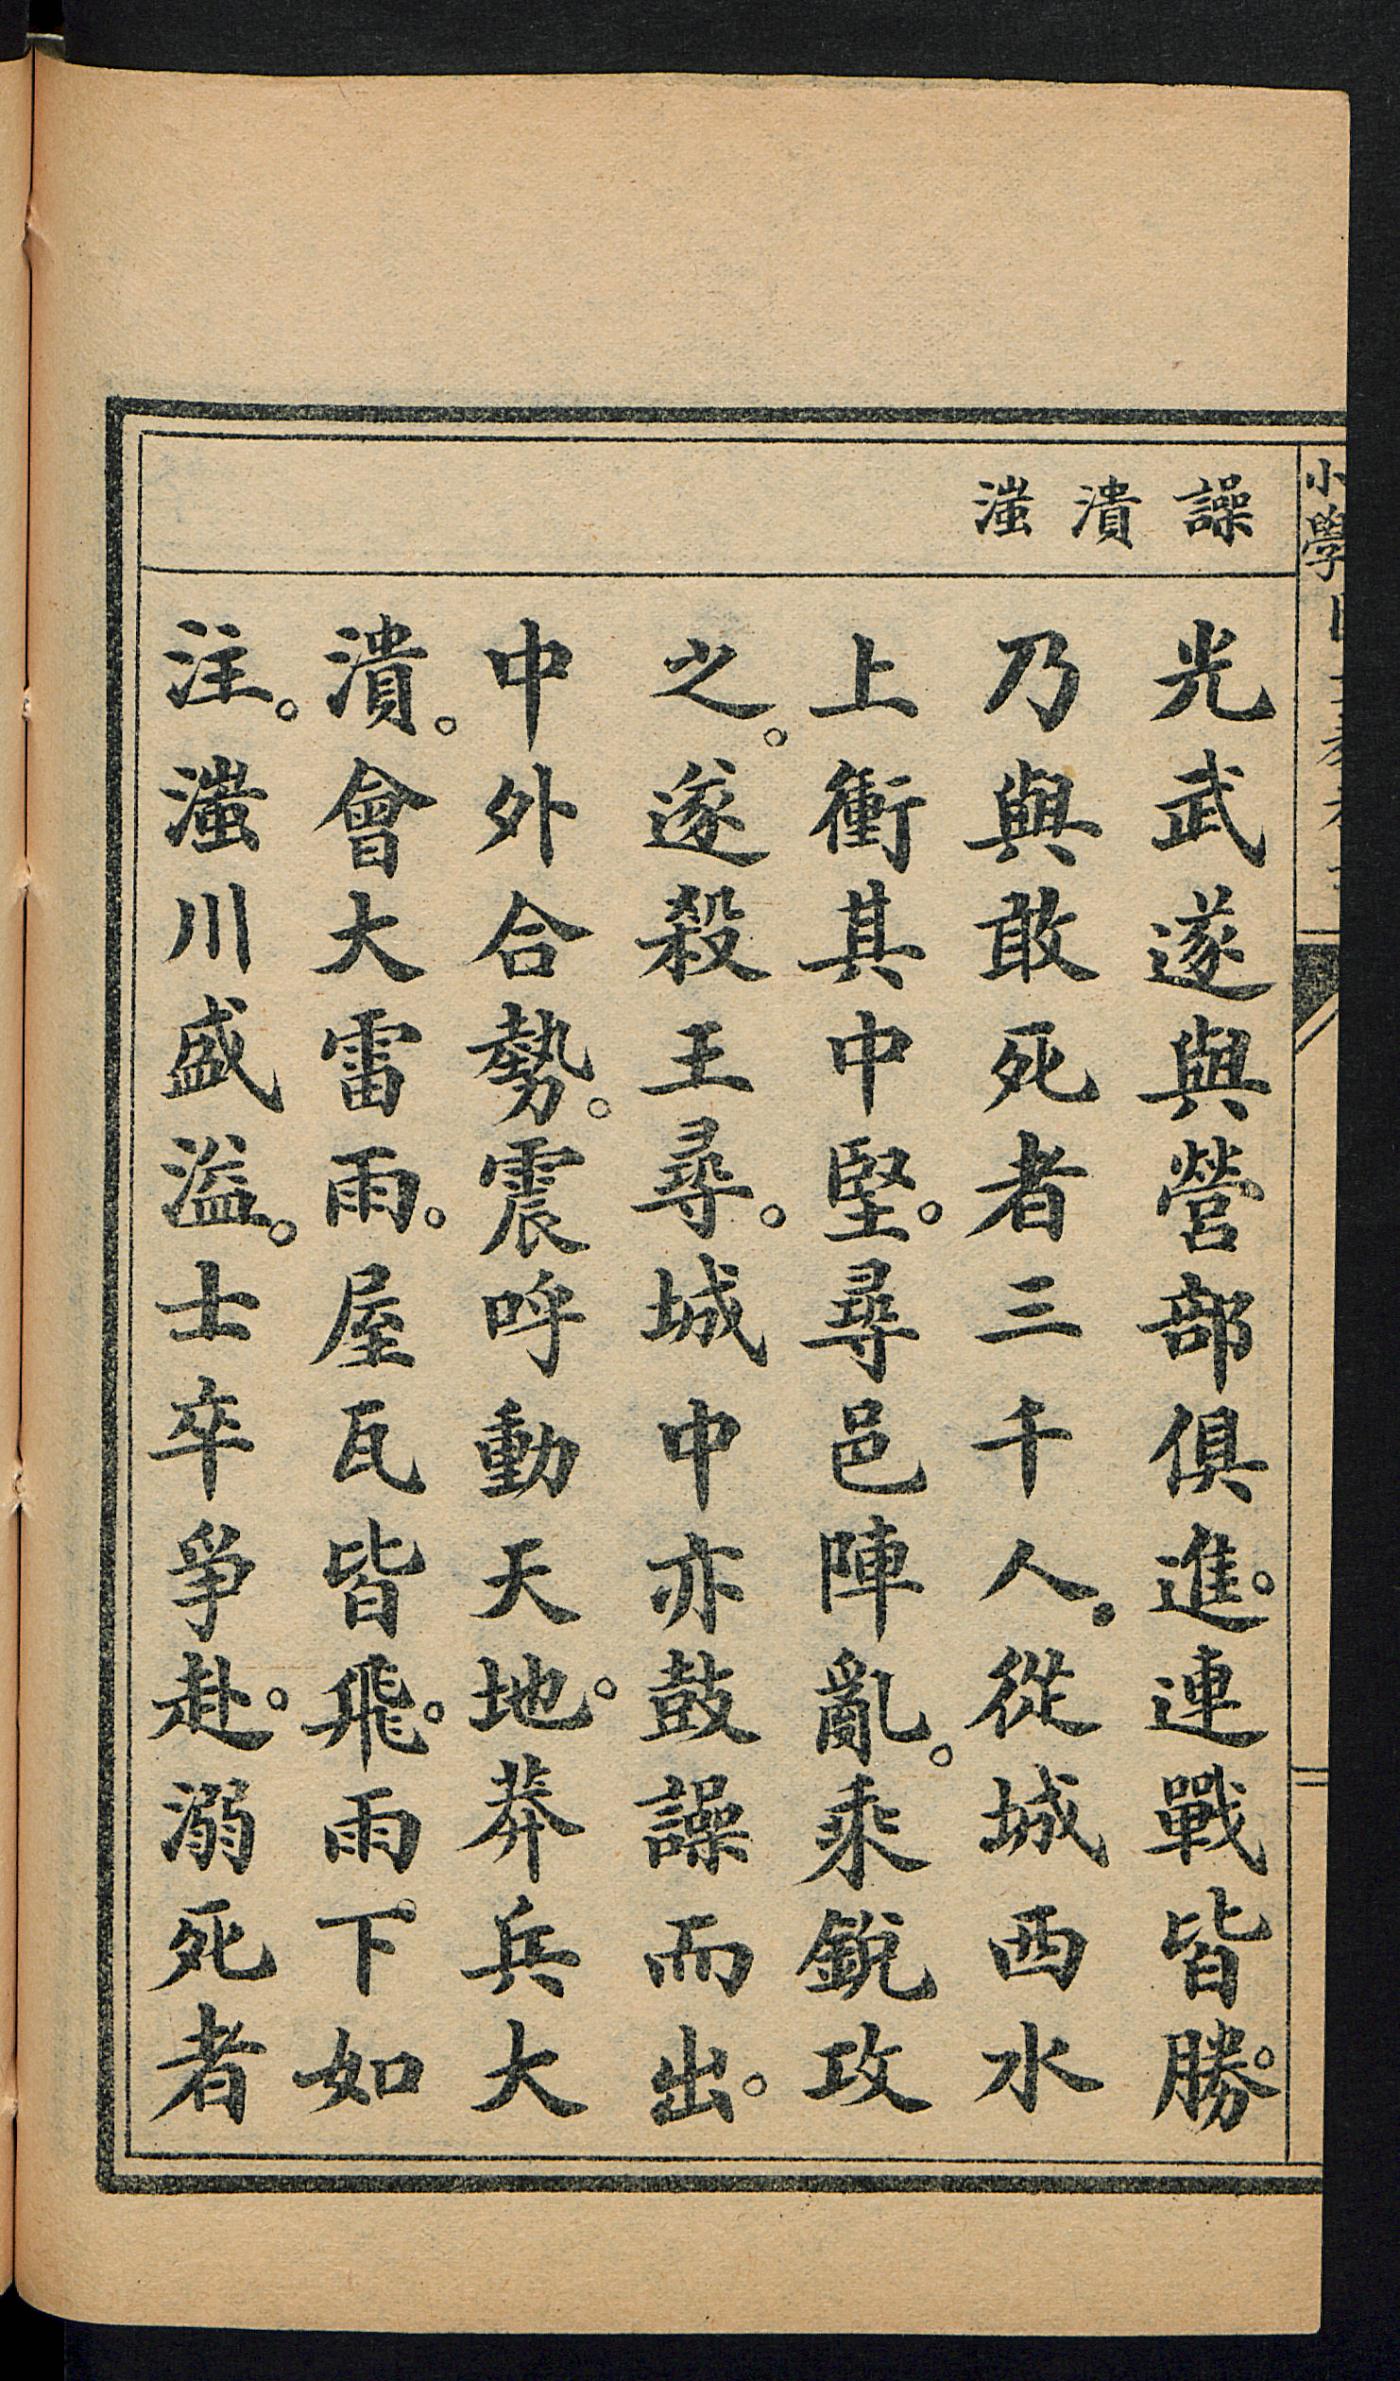 小學
譟 潰 滍
光武遂與營部俱進。連戰皆勝。
乃與敢死者三千人。從城西水
上衝其中堅。尋邑陣亂。乘銳攻
之。遂殺王尋。城中亦鼓譟而出。
中外合勢。震呼動天地。莽兵大
潰。會大雷雨。屋瓦皆飛。雨下如
注。滍川盛溢。士卒爭赴。溺死者